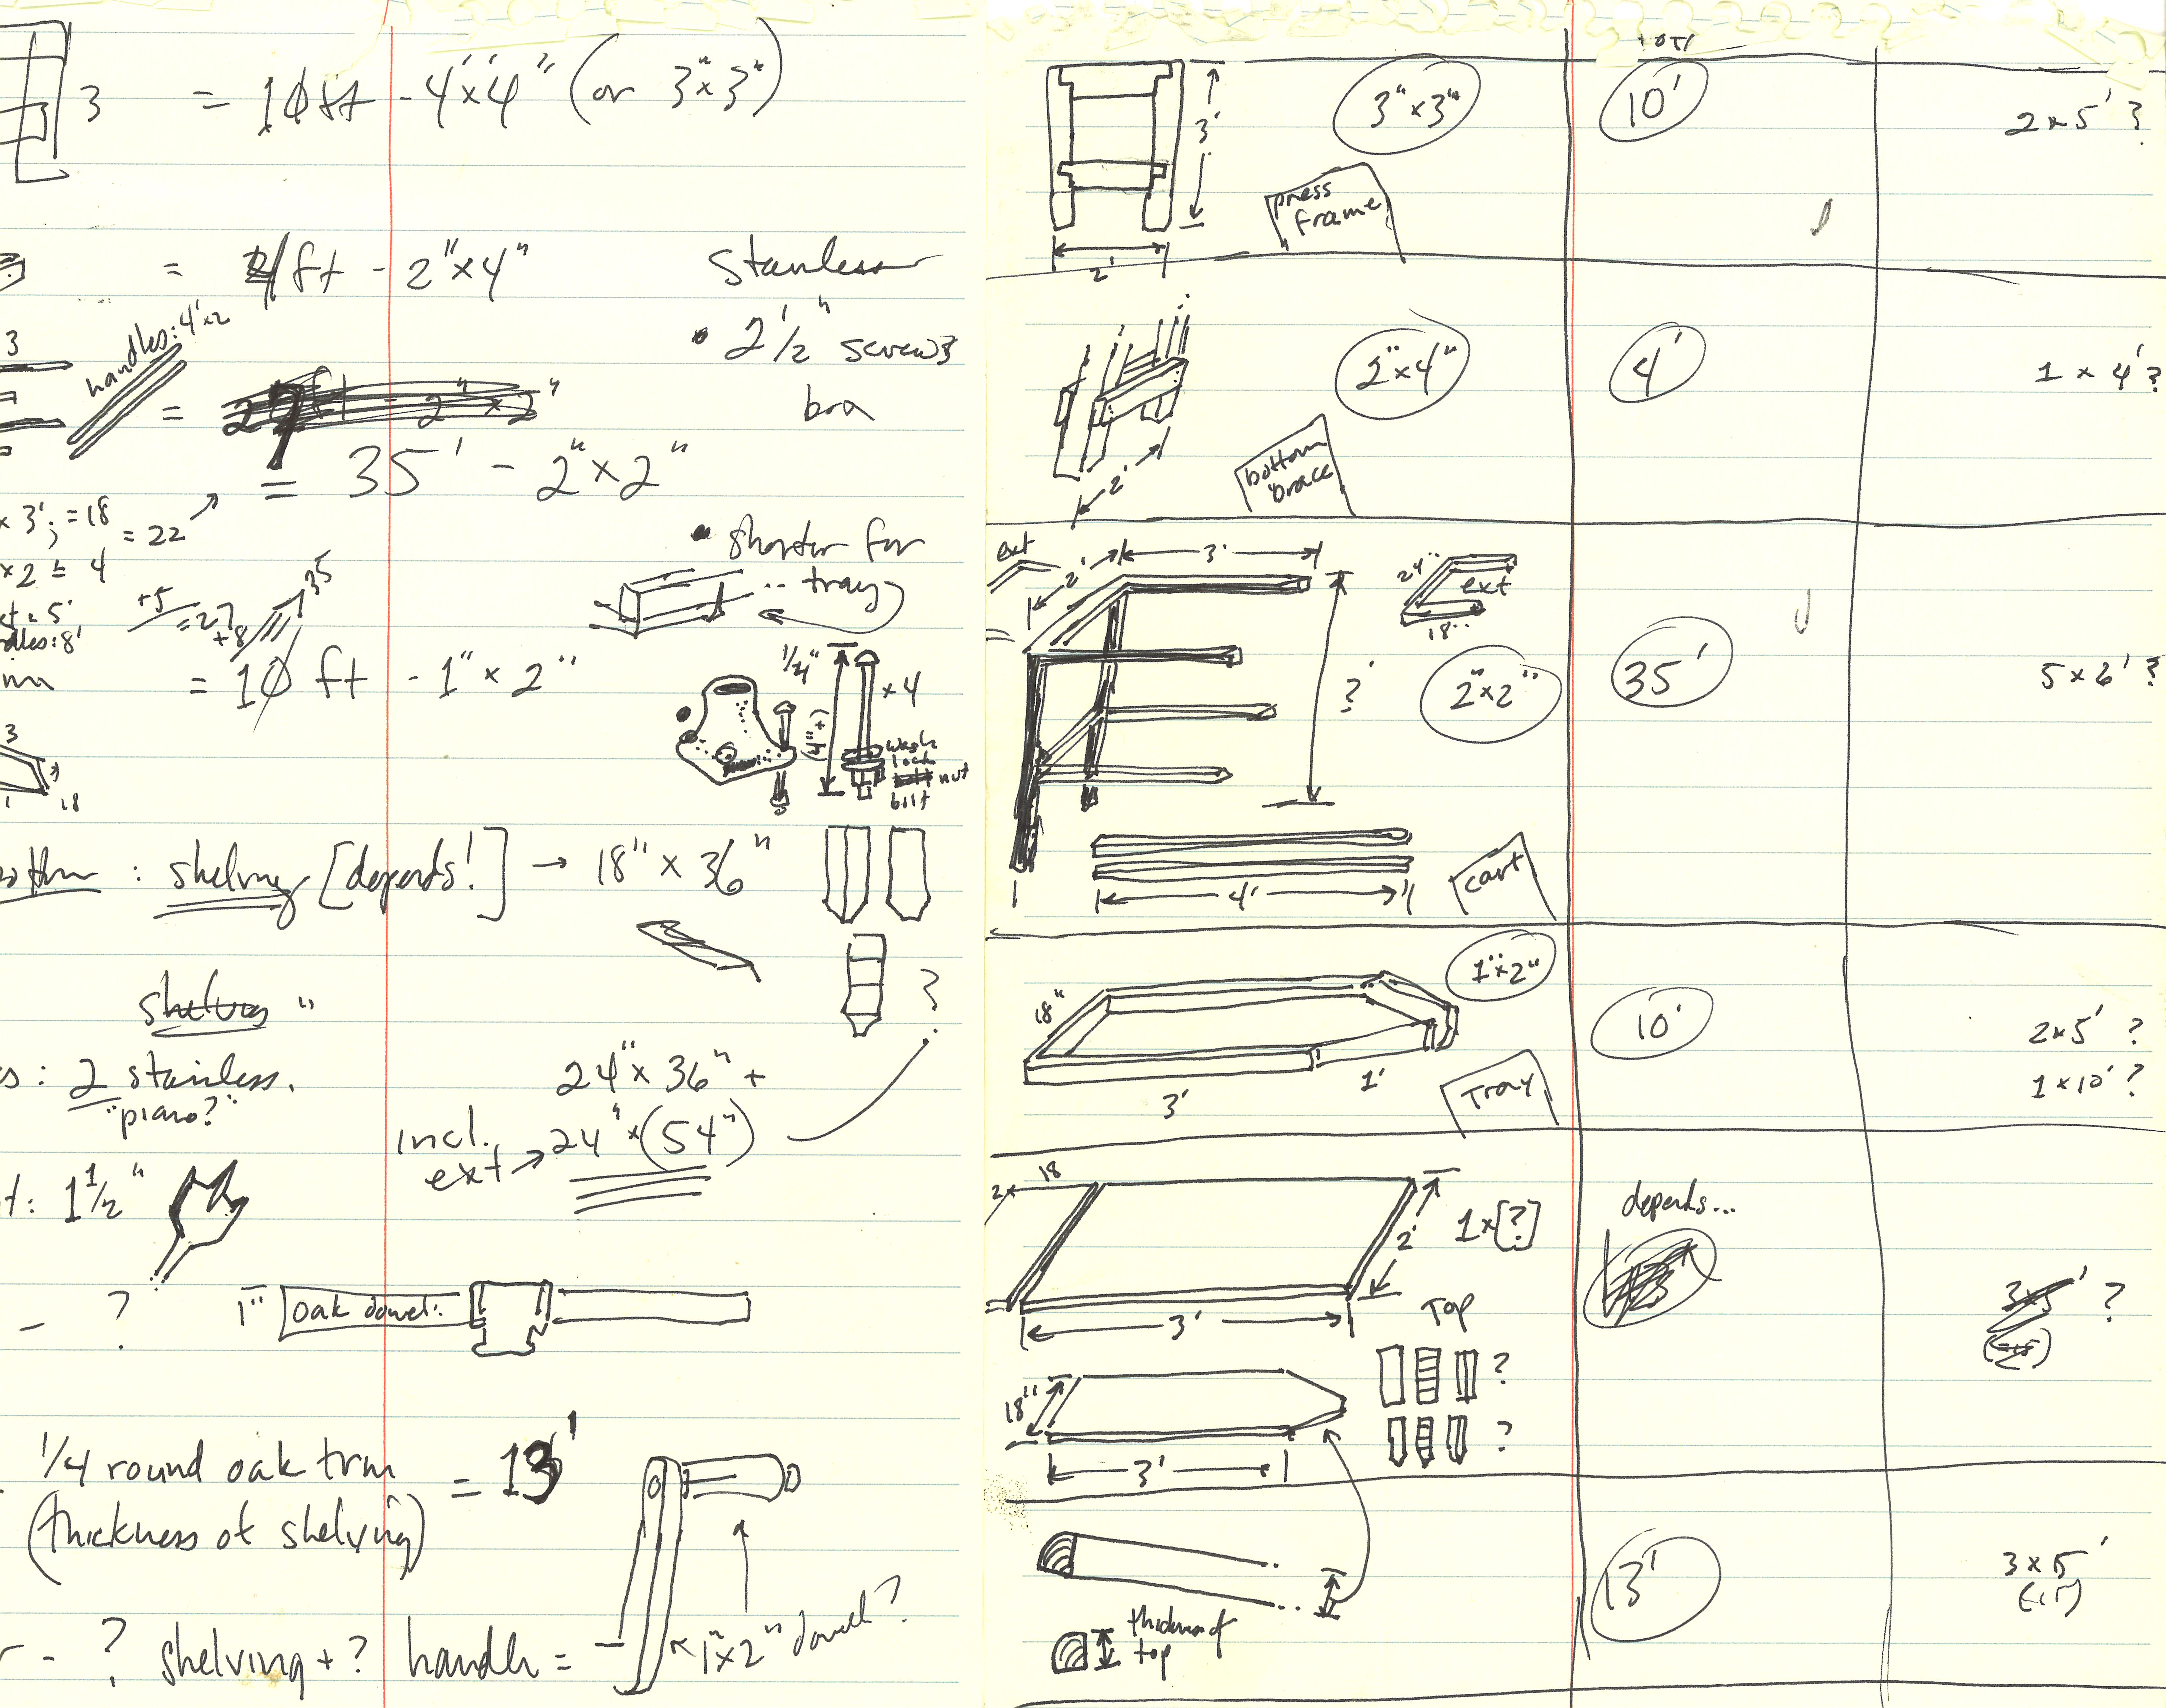 3 = 10 ft - 4"x4" (or 3"x3")
= 4 ft - 2"x4"
stainless
• 2 1/2" screws
bra
3
handles: 4'x2
=
= 35' - 2"x2"
x 3'; = 18
= 22
x 2 = 4
+5
= 27
+8
35
• shorter for
.. tray
= 10 ft - 1" x 2"
1/4"
x 4
wash
lock
nut
bolt
3
18
: shelving [depends!] → 18" x 36"
shelves "
: 2 stainless.
"piano?"
?
24" x 36" +
incl.
ext → 24" x (54")
t: 1 1/2"
- ?
1"
oak dowel:
1/4 round oak trm = 13'
(thickness of shelving)
- ? shelving + ? handle =
1"x2" dowel?
3'
2'
3"x3"
10'
2 x 5' ?
press
frame
2'
2"x4"
4'
1 x 4' ?
bottom
brace
ext
2'
3'
24"
ext
18"
?'
2"x2"
35'
5 x 6' ?
4'
cart
18"
1"x2"
10'
2x5' ?
1 x 10' ?
3'
1'
Tray
18
2x
2'
1 x [?]
depends...
3'
Top
?
18"
?
3'
?
13'
3 x 5'
thickness of
top